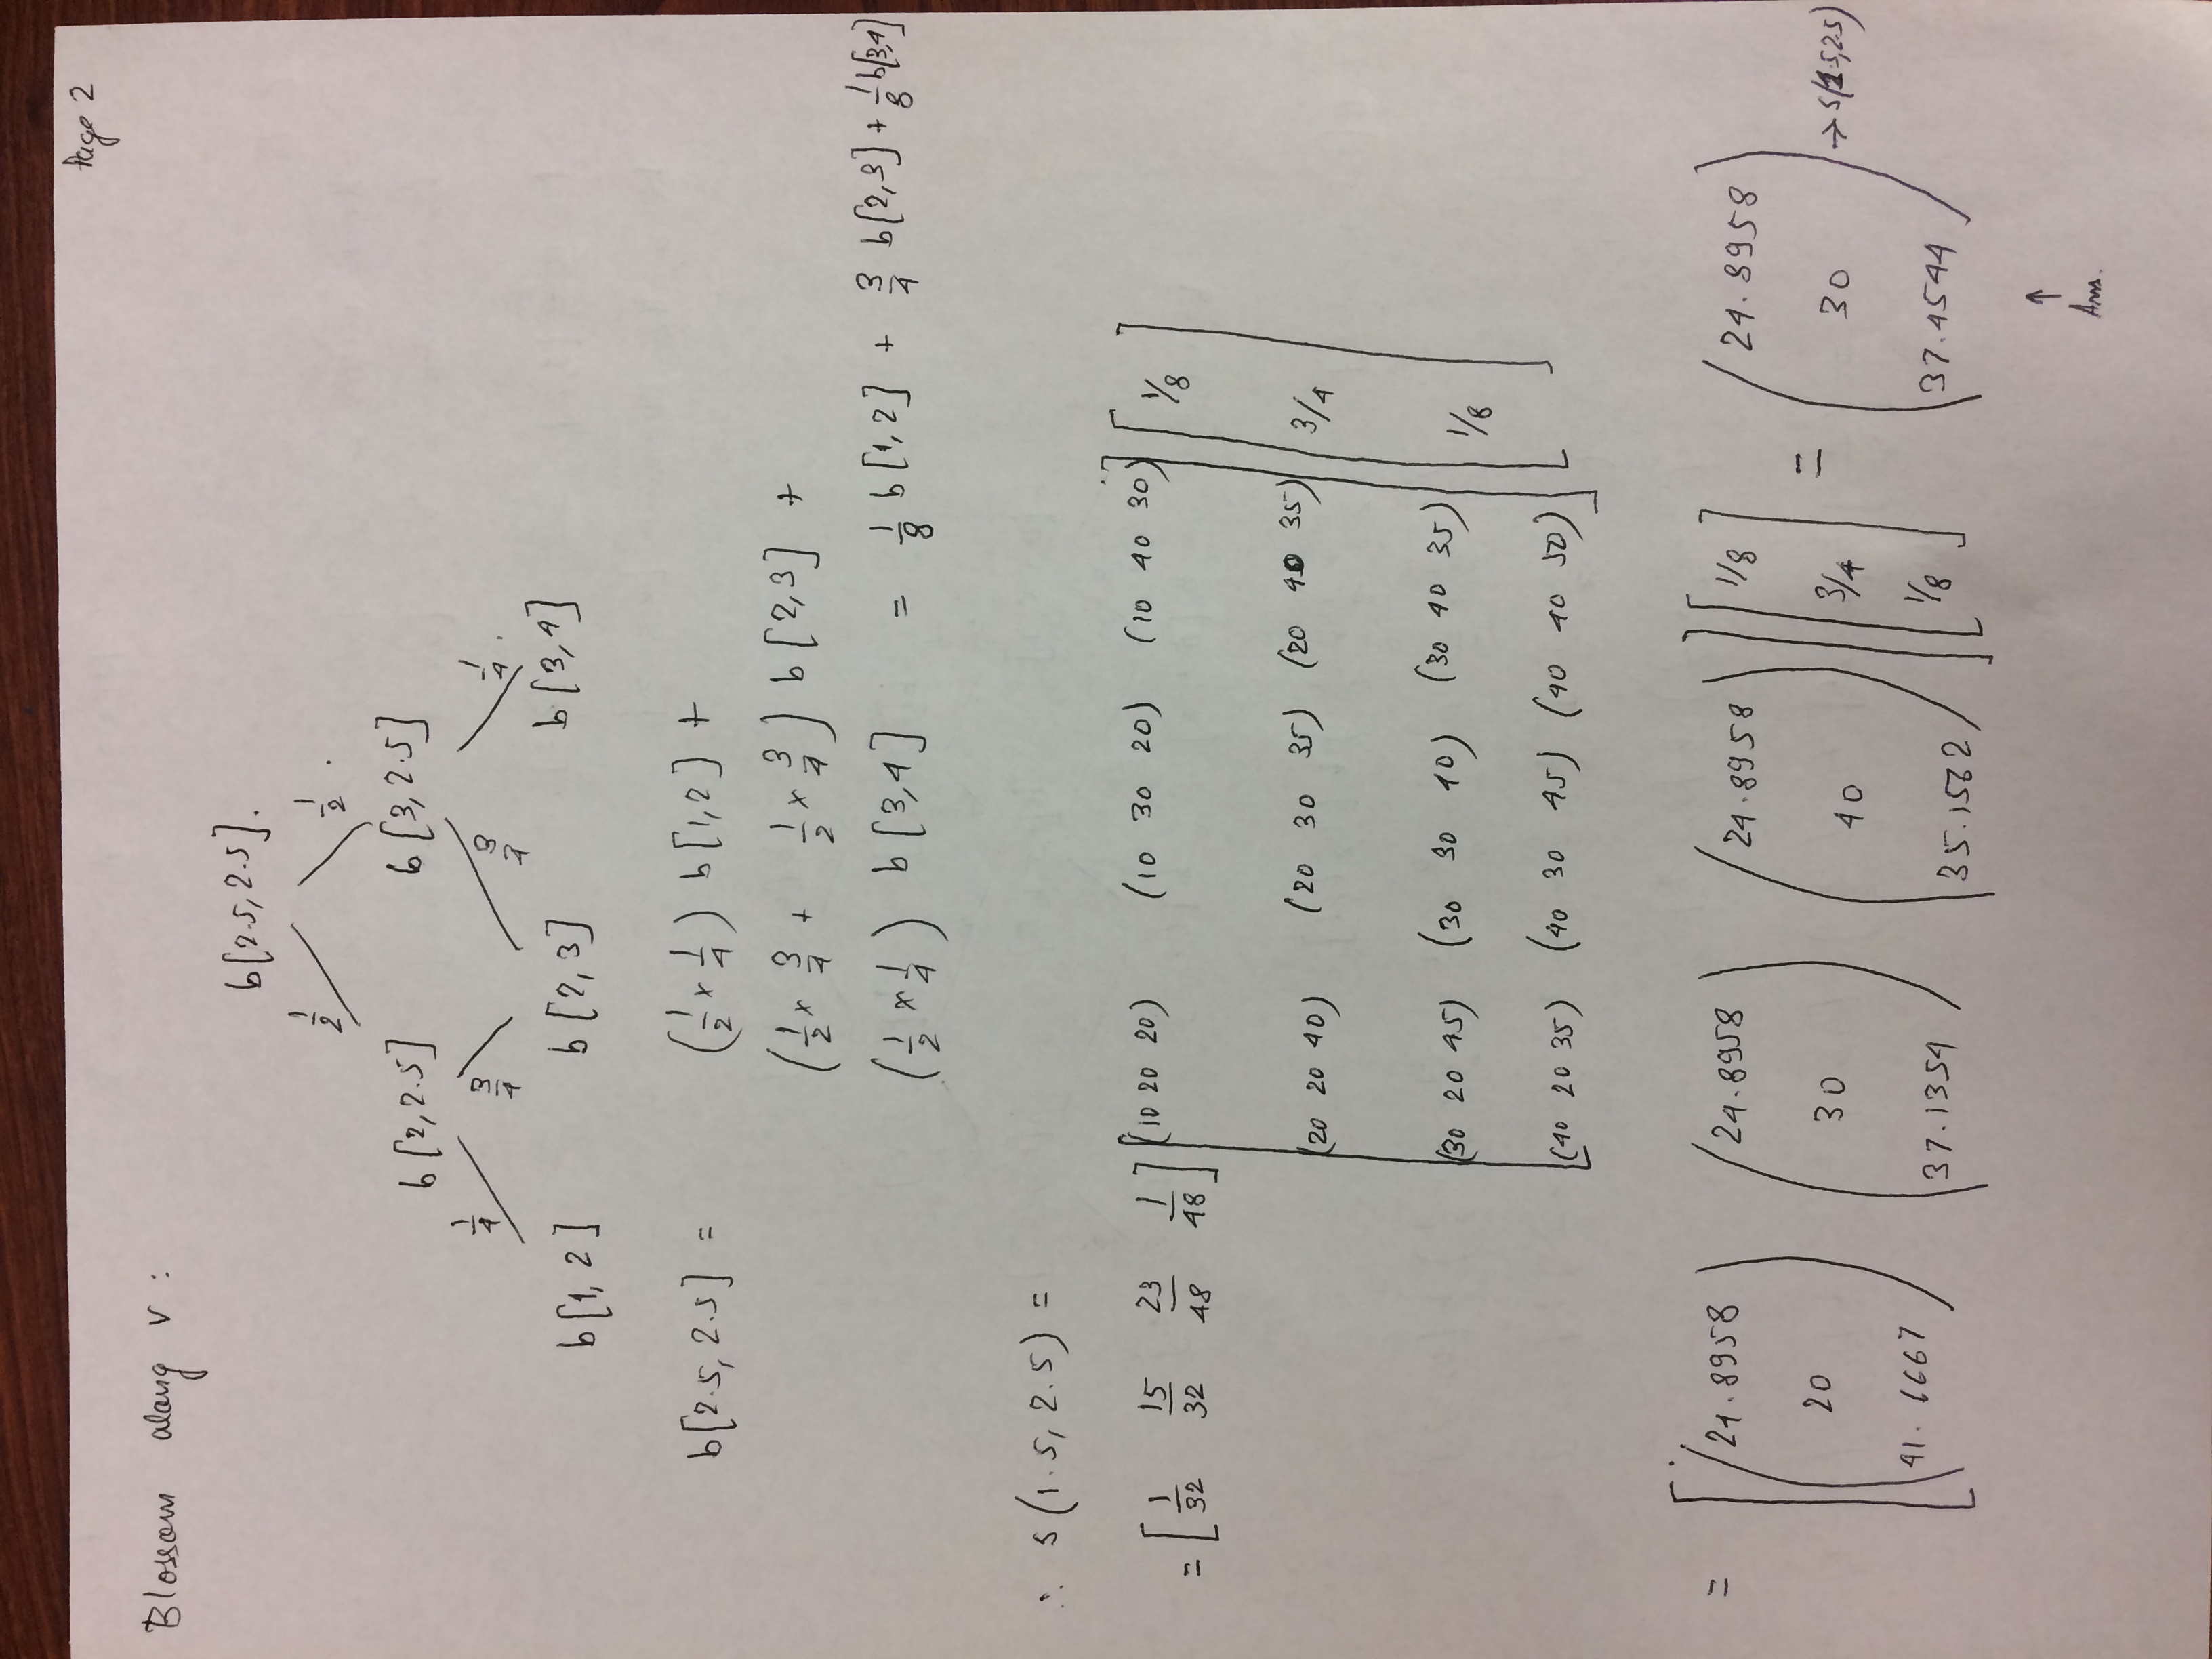 Page 2
Blossom along v :
b[2.5, 2.5].
1/2 1/2 .
b[2, 2.5] b[3, 2.5]
1/4 3/4 3/4 1/4 .
b[1, 2] b[2, 3] b[3, 4]
b[2.5, 2.5] = (1/2 × 1/4) b[1,2] +
(1/2 × 3/4 + 1/2 × 3/4) b[2,3] +
(1/2 × 1/4) b[3,4] = 1/8 b[1,2] + 3/4 b[2,3] + 1/8 b[3,4]
∴ s(1.5, 2.5) =
= [1/32 15/32 23/48 1/48] [(10 20 20) (10 30 20) (10 40 30)] [1/8
(20 20 40) (20 30 35) (20 40 35) 3/4
(30 20 45) (30 30 40) (30 40 35) 1/8]
(40 20 35) (40 30 45) (40 40 50)
= [(24.8958 (24.8958 (24.8958 [1/8 (24.8958
20 30 40 3/4 = 30 → s(1.5,2.5)
41.6667) 37.1354) 35.1562)] 1/8] 37.4544)
↑
Ans.